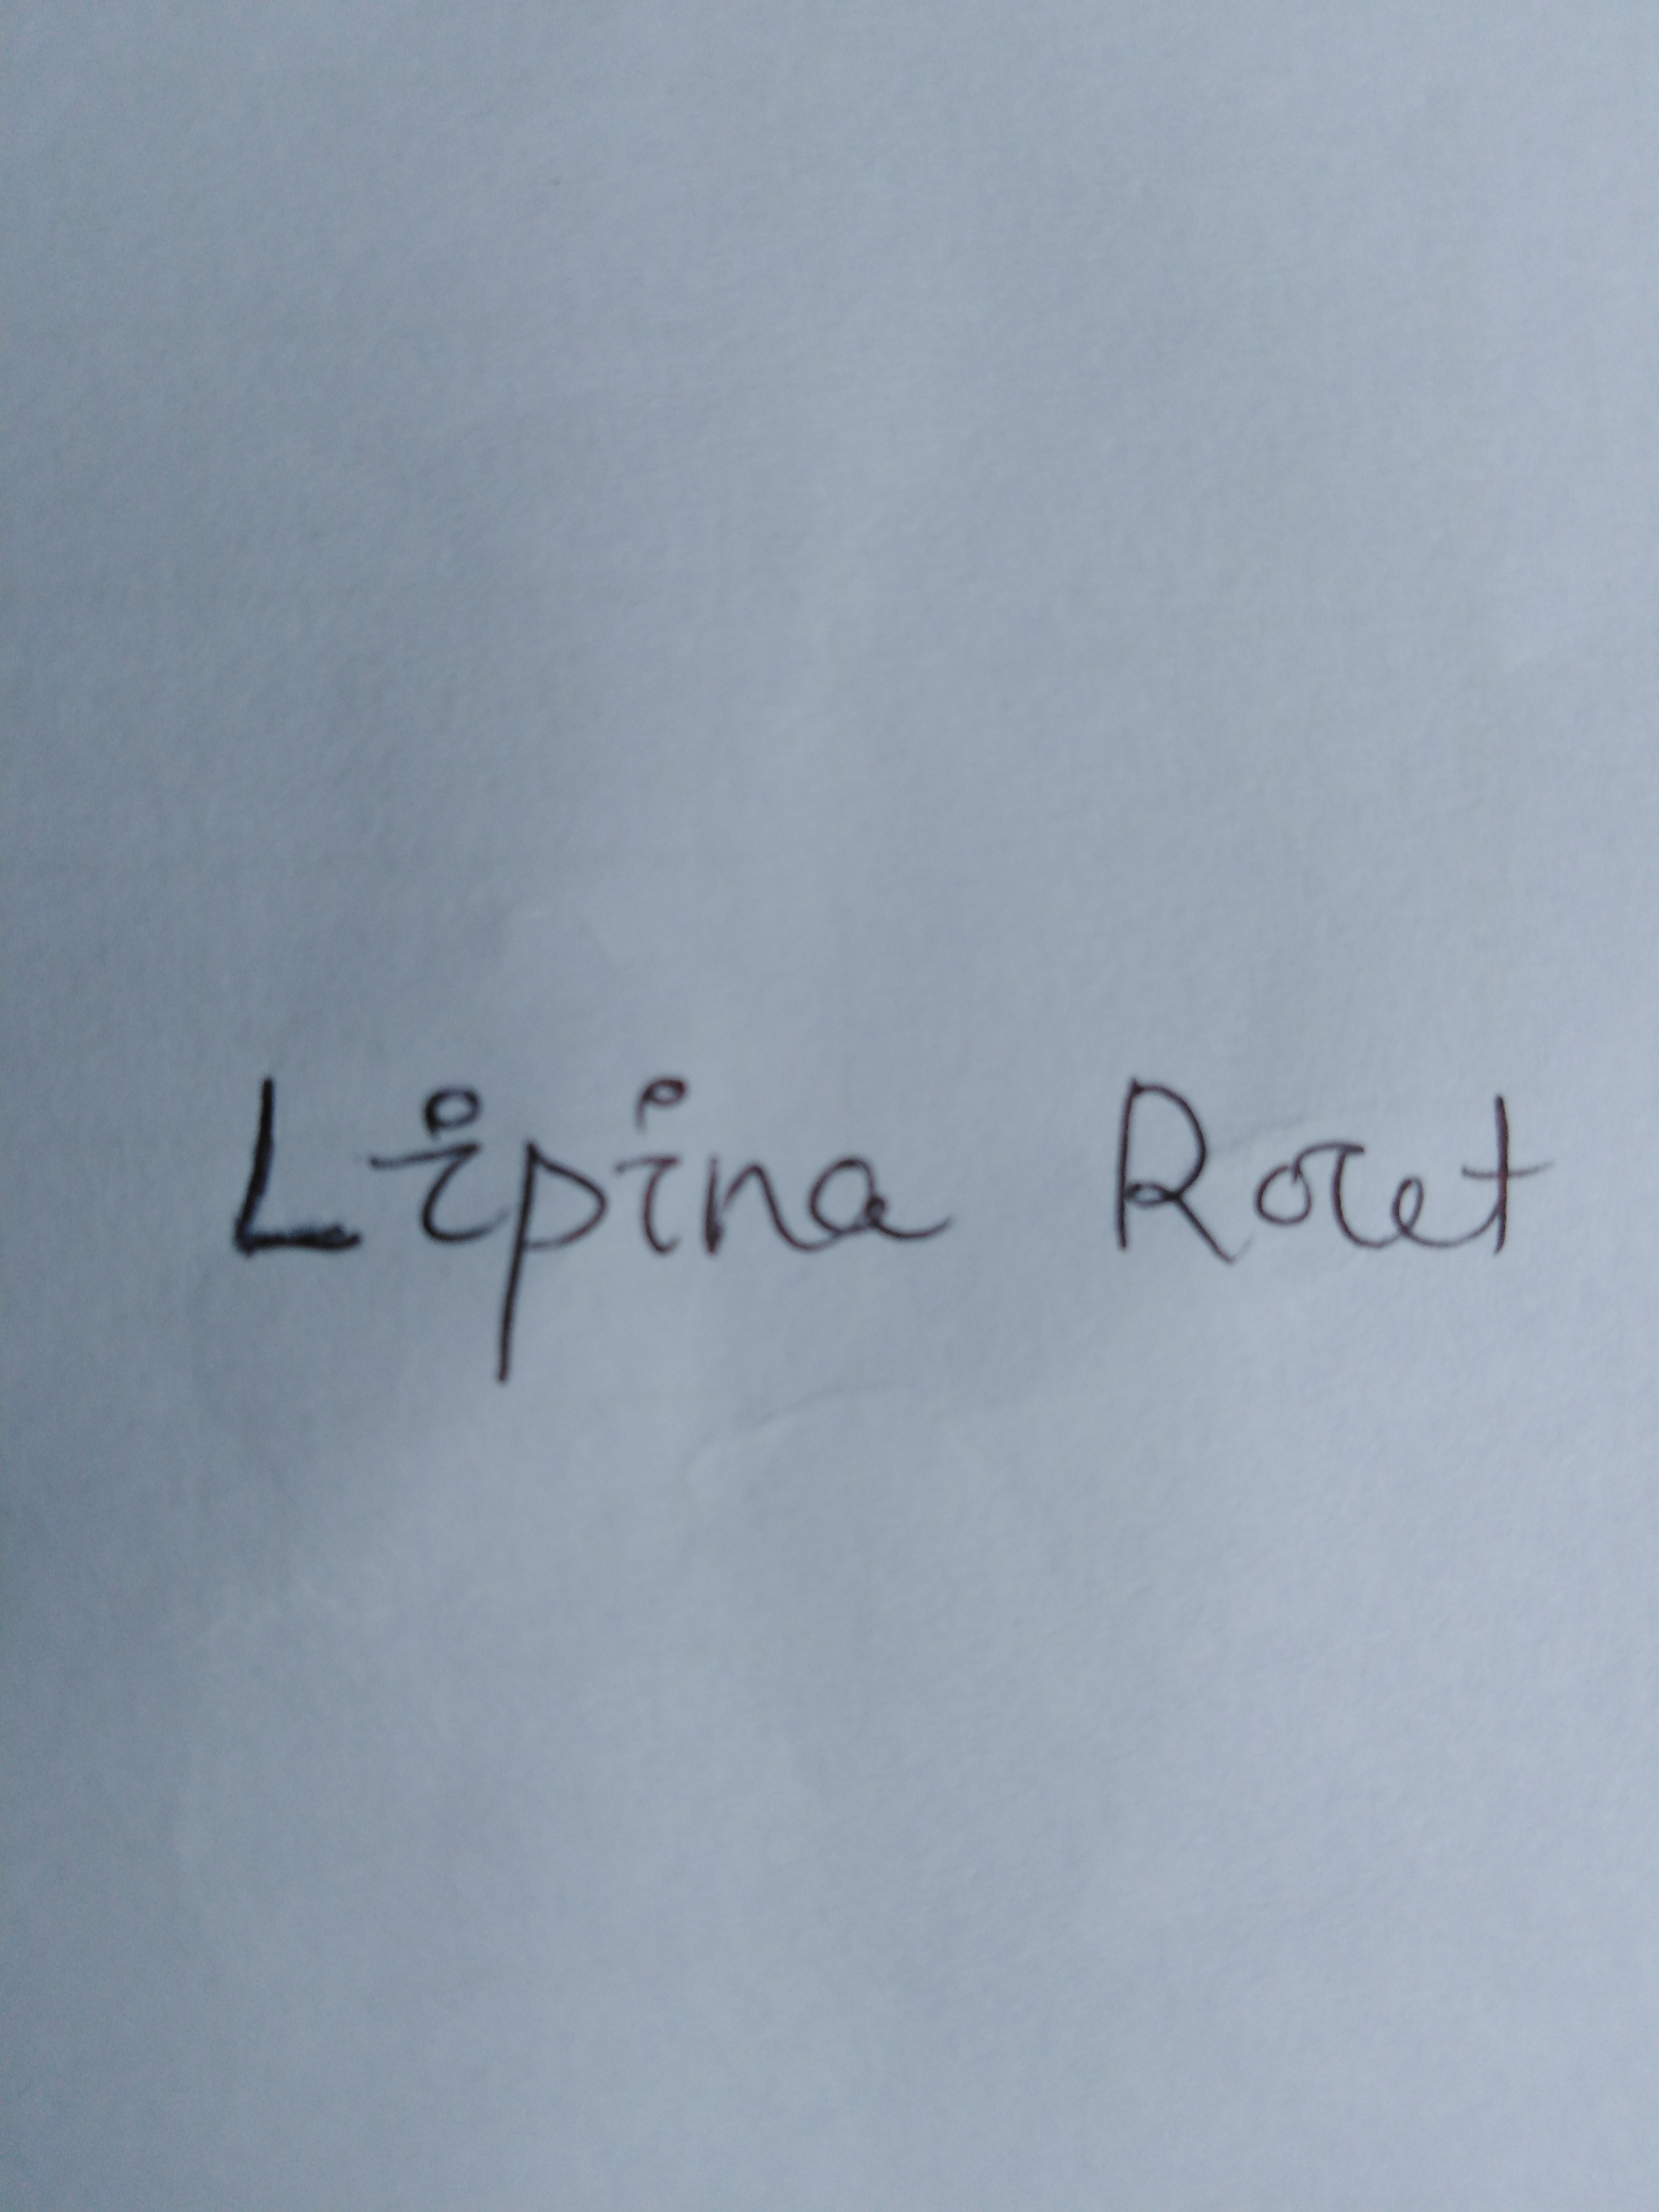 Lipina Rout